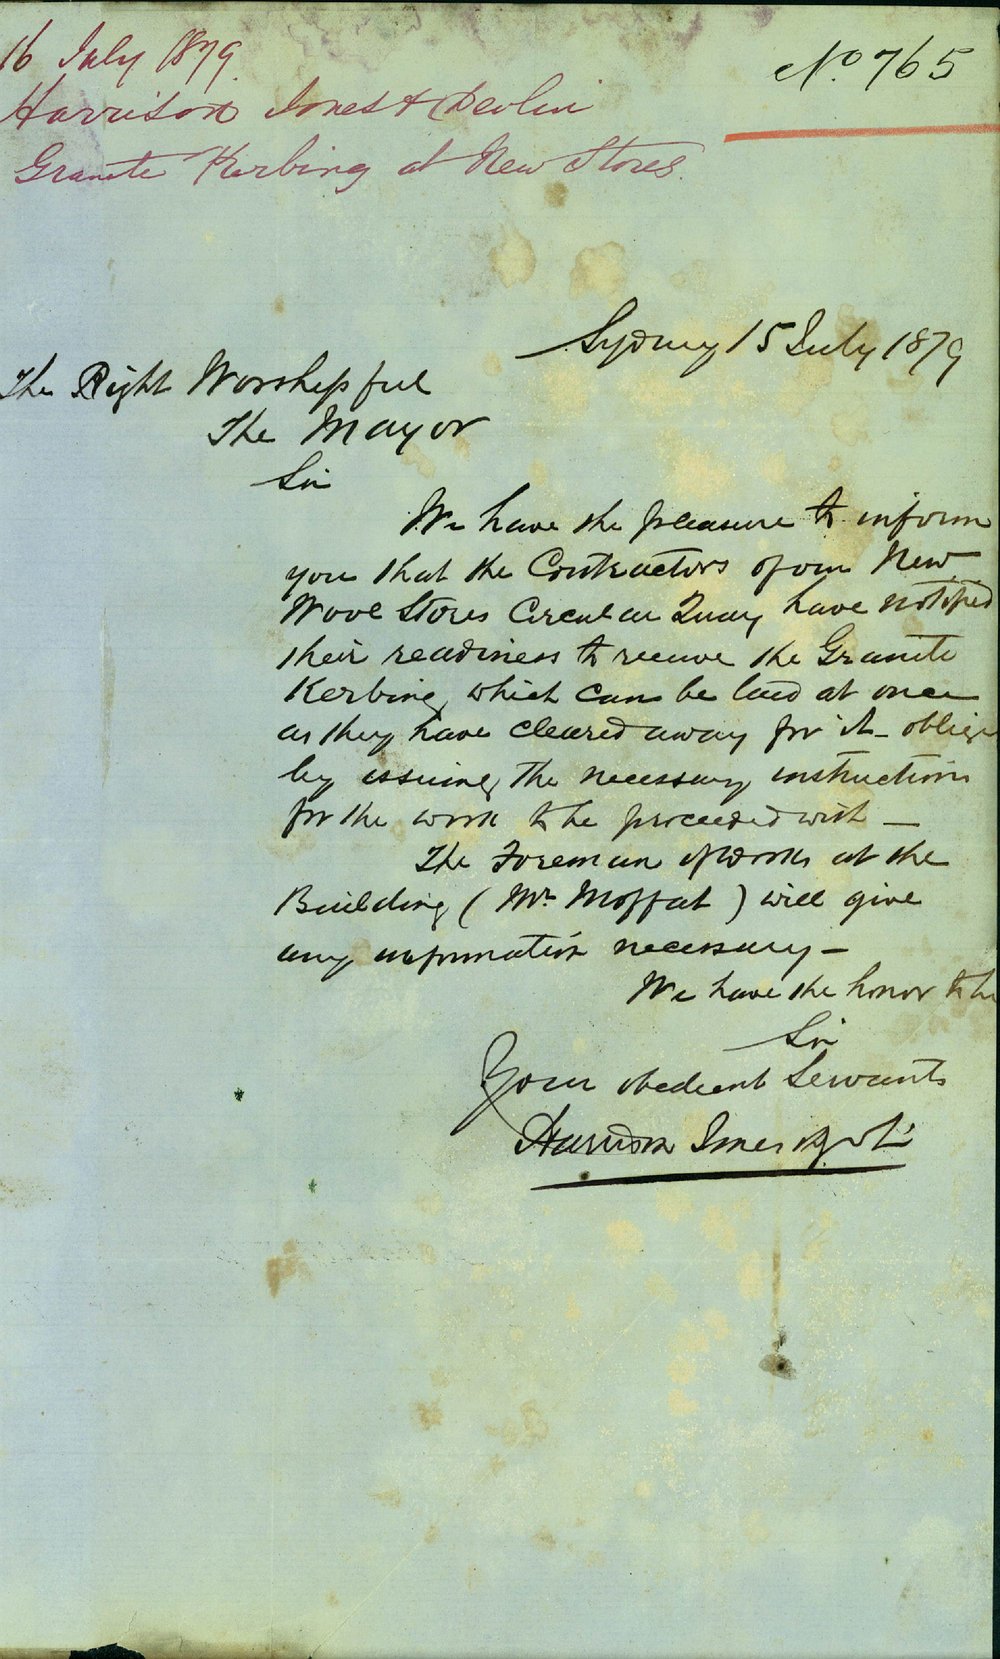 16 July 1879
No 765
Harrison Jones & Devlin
Granite Kerbing at New Stores.
Sydney 15 July 1879
The Right Worshipful
The Mayor
Sir
We have the pleasure to inform
you that the Contractors of our New
Wool Stores Circular Quay have notified
their readiness to receive the Granite
Kerbing, which can be laid at once
as they have cleared away for it - oblige
by issuing the necessary instructions
for the work to be proceeded with -
The Foreman of Works at the
Building (Mr. Moffat) will give
any information necessary -
We have the honor to be
Sir
Your obedient Servants
Harrison Jones & Devlin